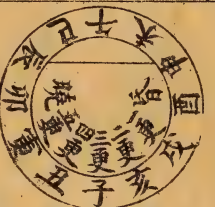 子丑寅卯辰巳午未申酉戌亥
昏一更二更三更四更五更曉